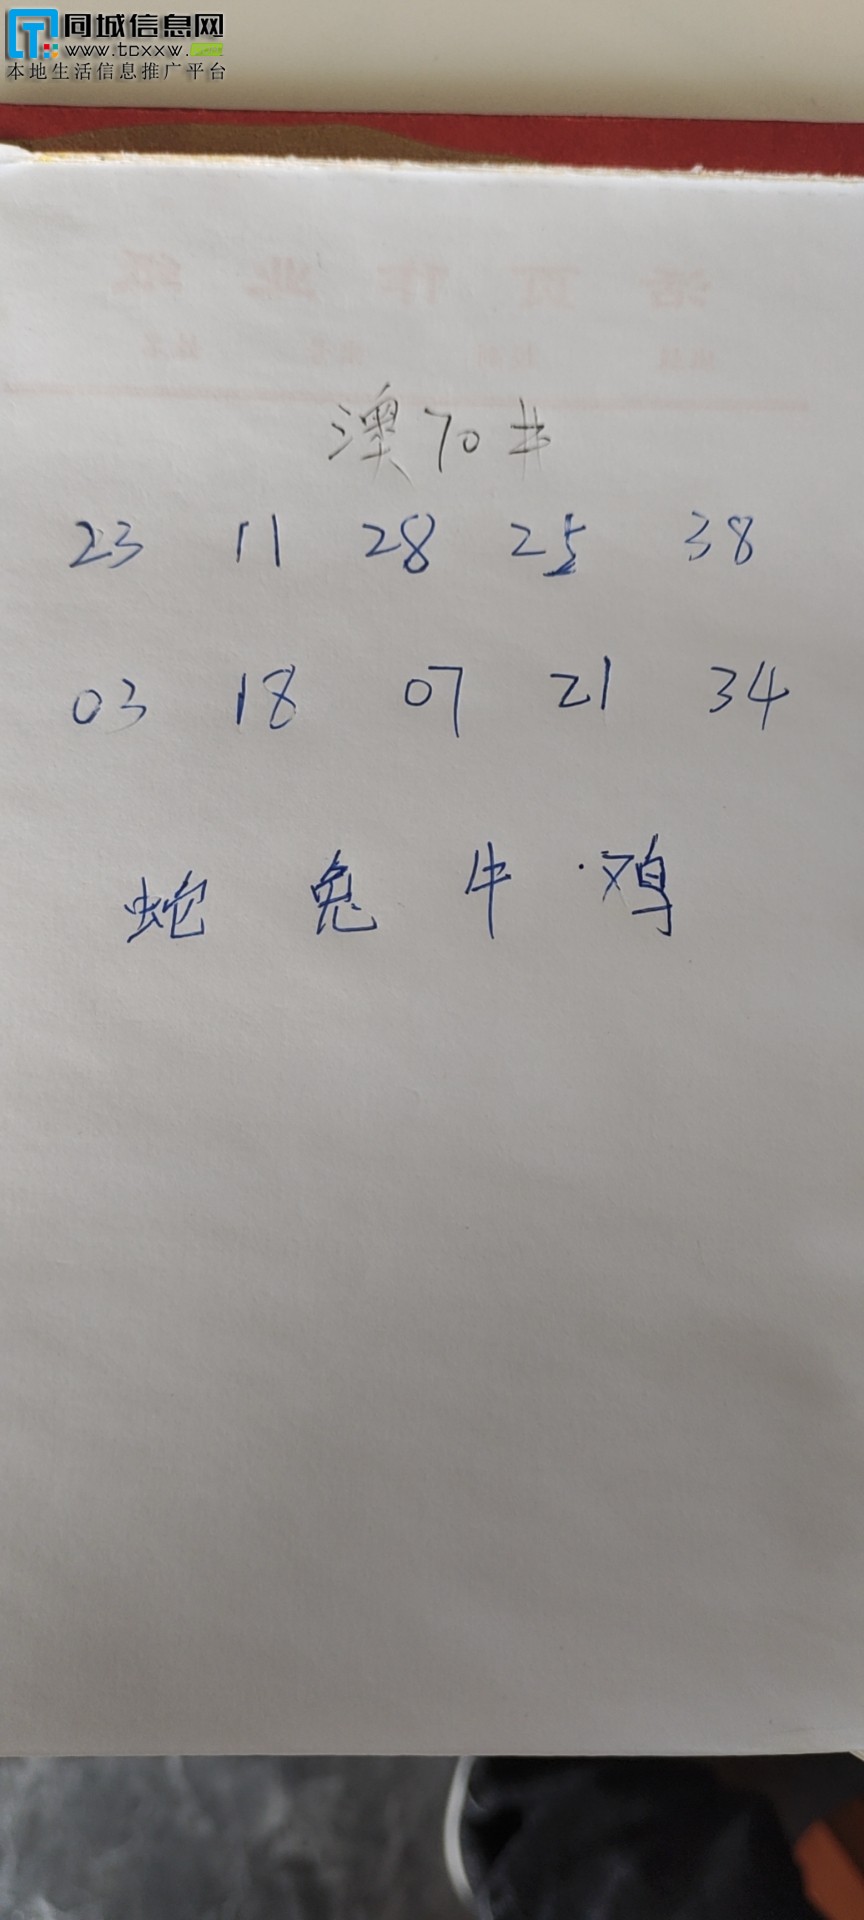 同城信息网
www.tcxxw.
本地生活信息推广平台
活页作业纸
澳70#
23 11 28 25 38
03 18 07 21 34
蛇 兔 牛 · 鸡